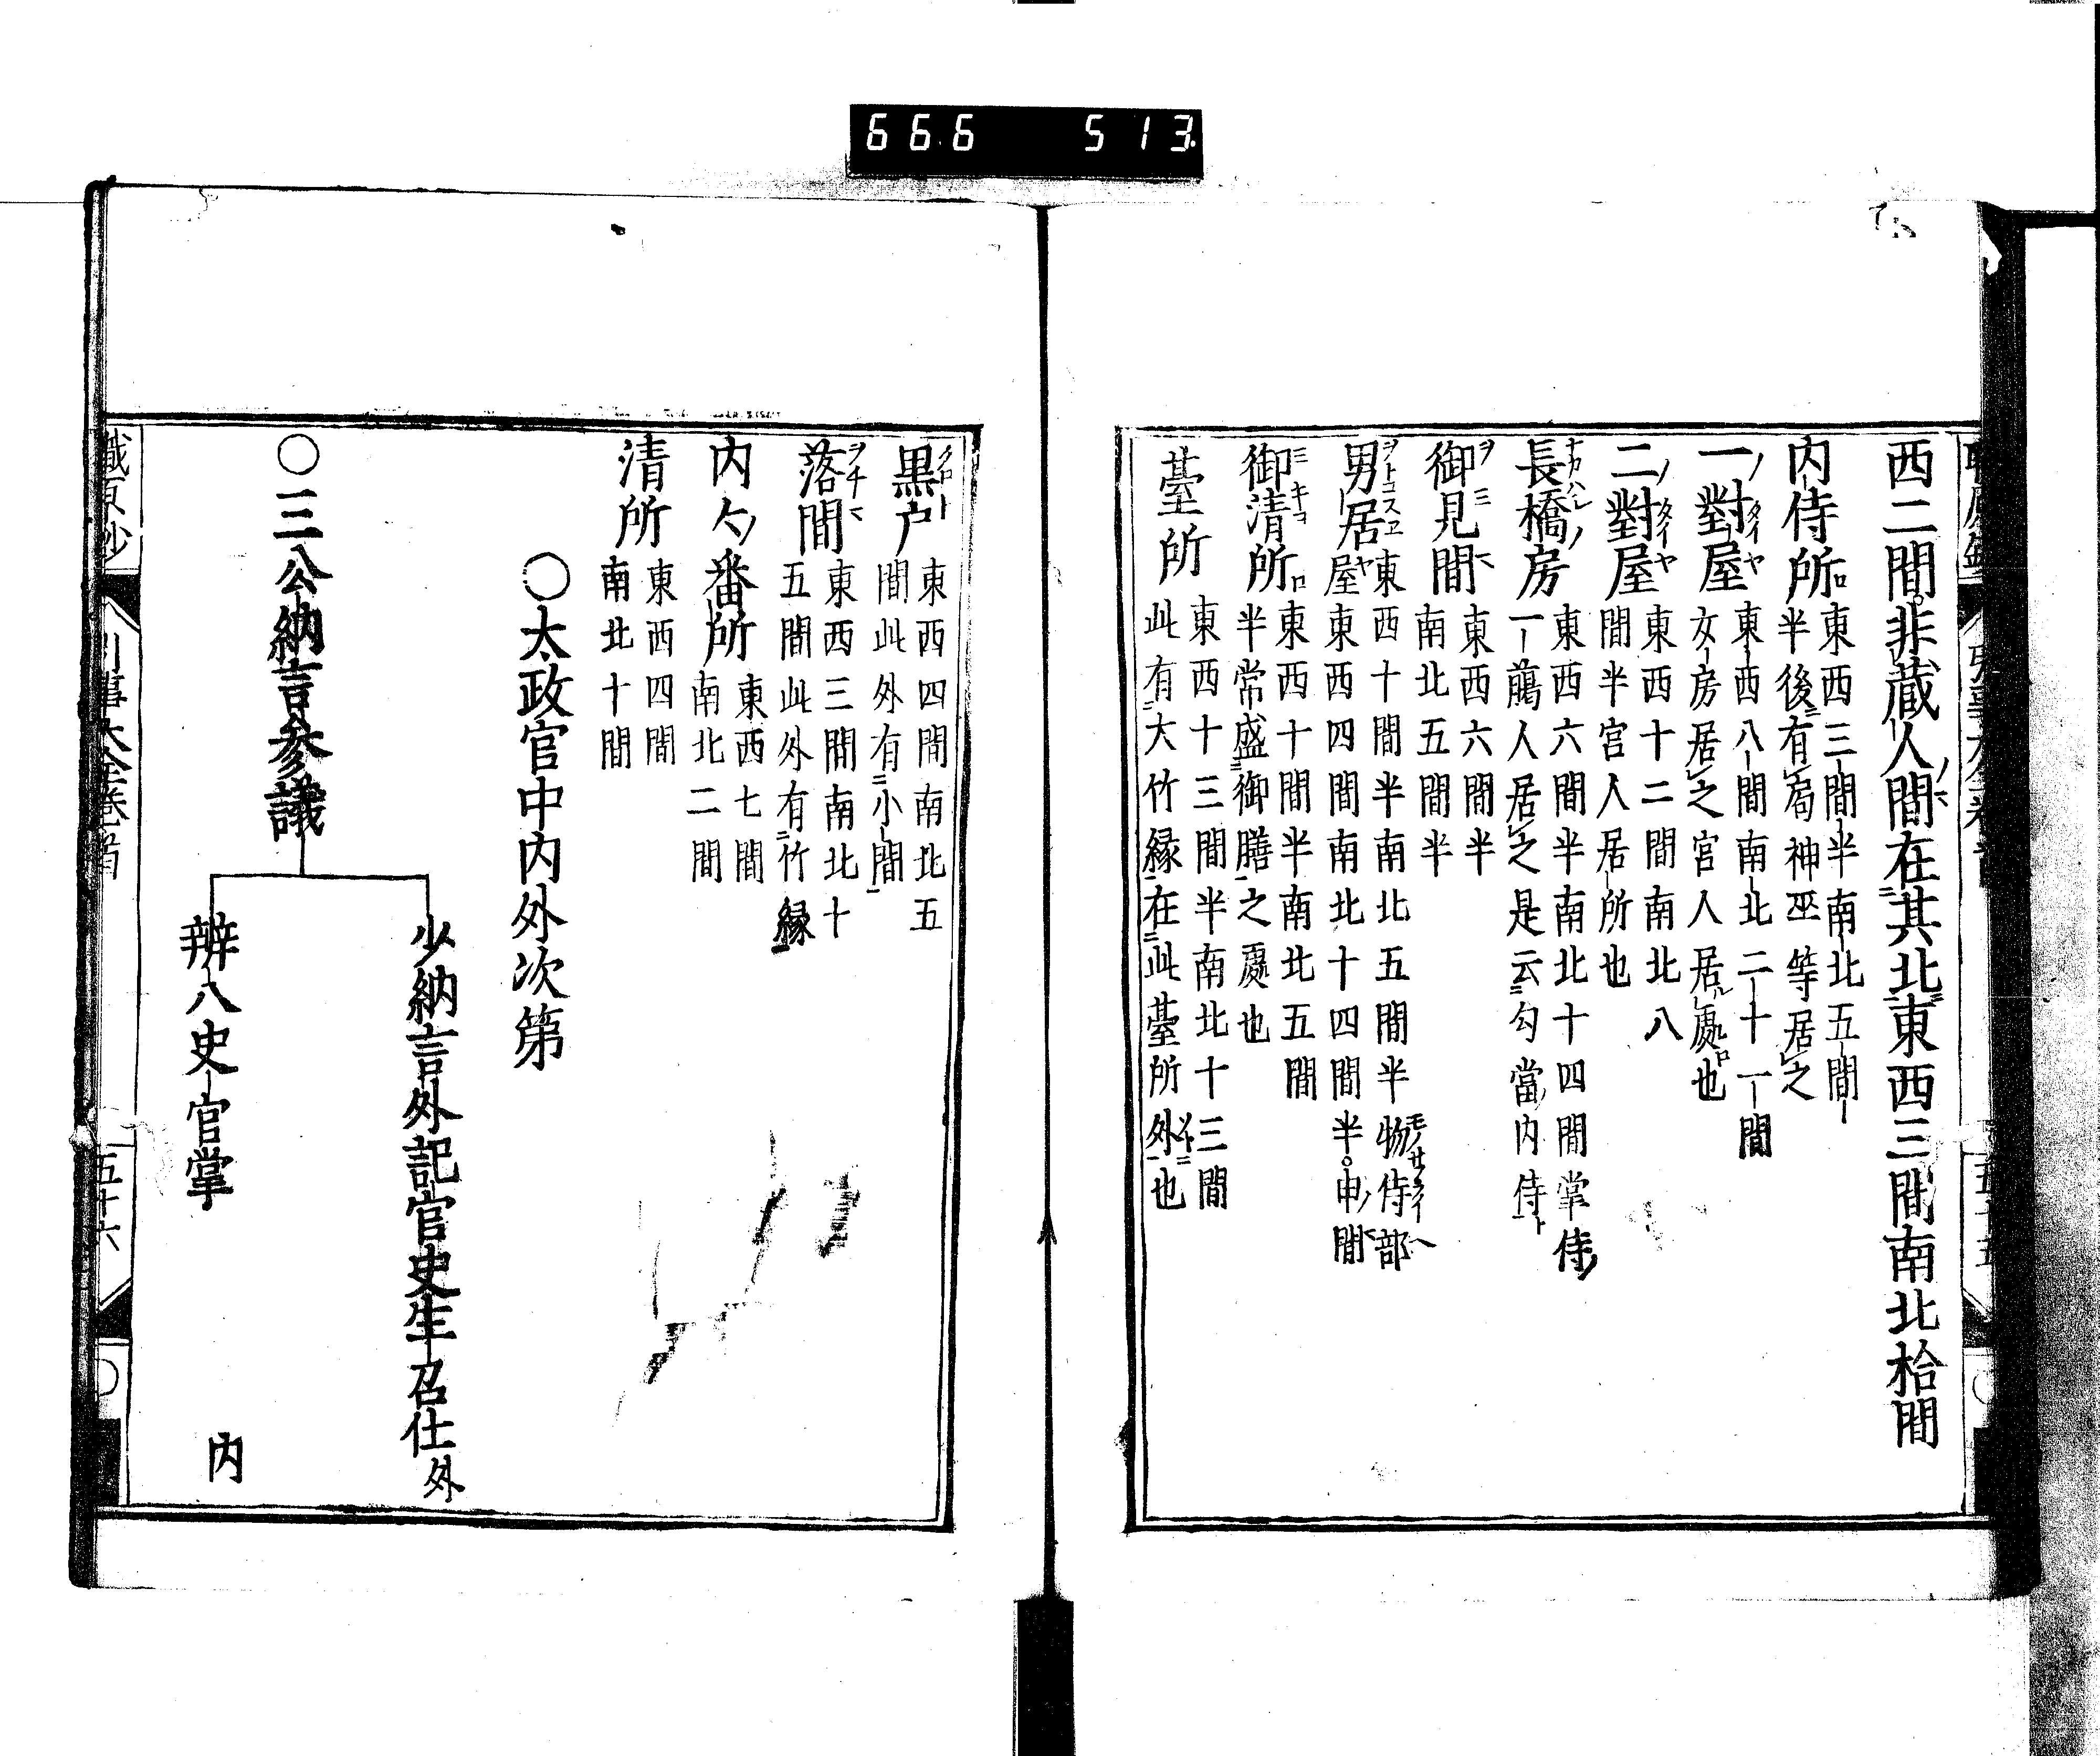 666 513
西二間非蔵人間在其北東西三間南北拾間
内侍所 東西三間半南北五間
半後有局神巫等居之
一對屋 東西八間南北二十一間
女房居之官人居處也
二對屋 東西十二間南北八
間半官人居所也
長橋房 東西六間半南北十四間掌侍
一﨟人居之是云勾當内侍
御見間 東西六間半
南北五間半
男居 東西十間半南北五間半物侍部
屋東西四間南北十四間半申間
御清所 東西十間半南北五間
半常盛御膳之處也
臺所 東西十三間半南北十三間
此有大竹縁在此臺所外也
黒戸 東西四間南北五
間此外有小間
落間 東西三間南北十
五間此外有竹縁
内々番所 東西七間
南北二間
清所 東西四間
南北十間
〇太政官中内外次第
〇三公納言参議
少納言外記官史生召仕 外
辨八史官掌 内
職原抄 引事大全巻首 五十六